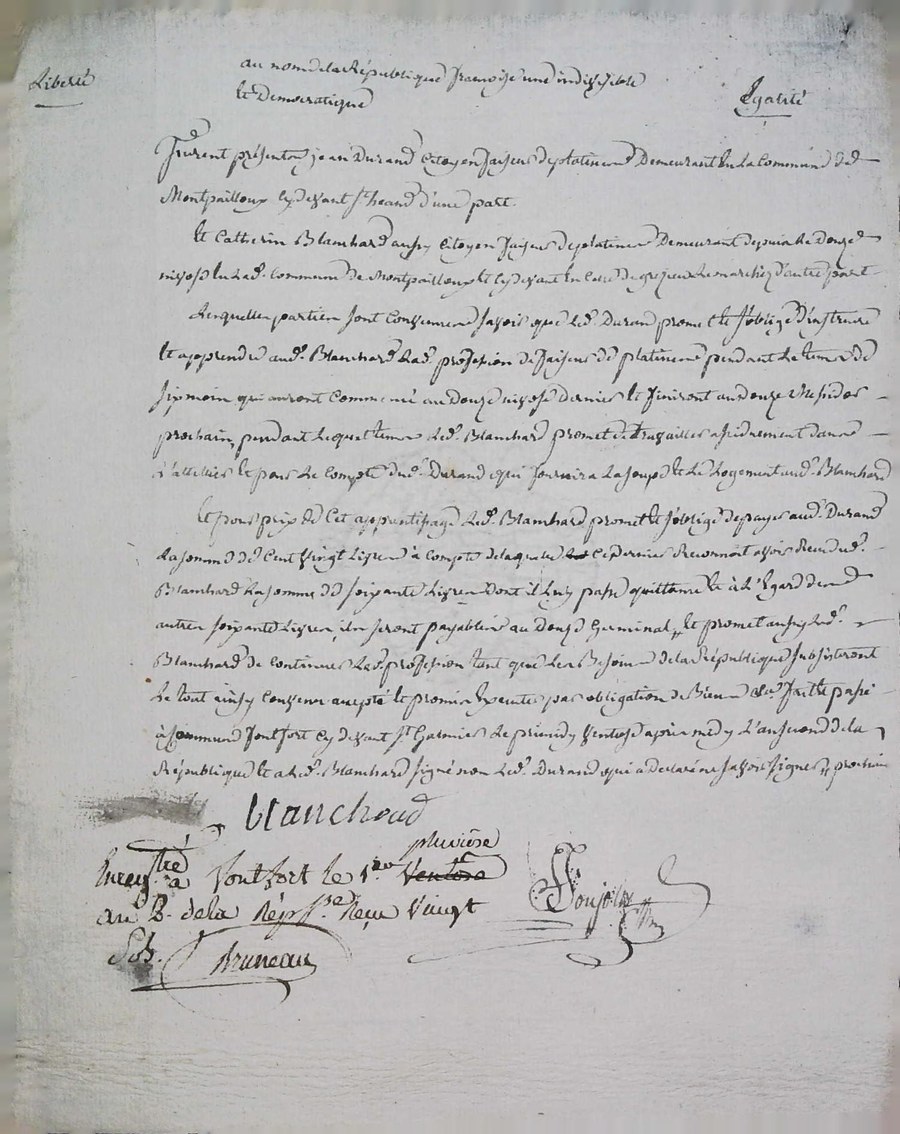 Liberté
au nom de la République françoise une indivisible
et Democratique
Egalité
Furent présents jean Durand Citoyen faiseur de platines Demeurant En La Commune de
Montpailloux cy devant St heand d'une part.
Et Catherin Blanchard aussy Citoyen faiseur de platines Demeurant depuis le douze
nivose en lad. Commune de Montpailloux et cy devant en celle de grezieux le marché d'autre part
Lesquelles parties sont Convenues savoir que led. Durand promet et s'oblige d'instruire
et apprendre aud. Blanchard lad. profession de faiseur de platines pendant le tems de
six mois qui auront Commencé au douze nivose dernier et finiront au douze Messidor
prochain, pendant lequel tems led. Blanchard promet de travailler assiduement dans
l'attellier et pour le Compte dud. Durand qui fournira la soupe et le Logement aud. Blanchard
Et pour prix de Cet apprentissage led. Blanchard promet et s'oblige de payer aud. Durand
la somme de Cent vingt Livres à compte de laquelle ce dernier Reconnoit avoir Reçu dud.
Blanchard la somme de soixante Livres dont il luy passe quittance et à L'Egard des
autres soixante Livres, ils seront payables au douze Germinal, et promet aussy led.
Blanchard de Continuer lad. profession tant que les Besoins de la République subsisteront
Le tout ainsy Convenu accepté et promis Executer par obligation de Biens &c. fait et passé
à Commune fontfort cy devant St Galmier le primidy ventose après midy L'an second de la
République et a led. Blanchard signé non led. Durand qui a declaré ne savoir signer,
blanchard
Enregtré à fontfort le 1er Ventose pluviôse
an 2 de la Rép. fse Reçu Vingt
Sols.
Bruneau